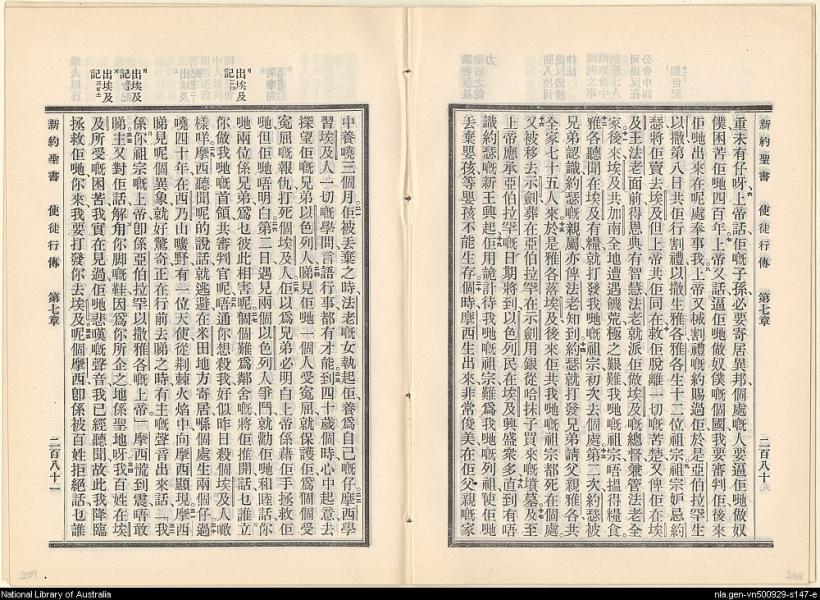 新約聖書 使徒行傳 第七章 二百八十
重未有仔呀上帝話佢嘅子孫必要寄居異邦個處嘅人要逼佢哋做奴
僕困苦佢哋四百年上帝又話逼佢哋做奴僕嘅個國我要審判佢後來
佢哋出來在呢處奉事我上帝又械割禮嘅約賜過佢於是亞伯拉罕生
以撒第八日共佢行割禮以撒生雅各雅各生十二位祖宗祖宗妒忌約
瑟將佢賣去埃及但上帝共佢同在救佢脫離一切嘅苦楚又俾佢在埃
及王法老面前得恩典有智慧法老就派佢做埃及嘅總督兼管法老全
家後來埃及共加南全地遭遇饑荒極之艱難我哋嘅祖宗唔搵得糧食
雅各聽聞在埃及有糧就打發我哋嘅祖宗初次去個處第二次約瑟被
兄弟認識約瑟嘅親屬亦俾法老知到約瑟就打發兄弟請父親雅各共
全家七十五人來於是雅各落埃及後來佢共我哋祖宗都死在個處
又被移去示劍葬在亞伯拉罕在示劍用銀從哈抹子買來嘅墳墓及至
上帝應承亞伯拉罕嘅日期將到以色列民在埃及興盛衆多直到有唔
識約瑟嘅新王興起佢用詭計待我哋嘅祖宗難爲我哋嘅列祖使佢哋
丟棄嬰孩等嬰孩不能生存個時摩西生出來非常俊美在佢父親嘅家
中養嘵三個月佢被丟棄之時法老嘅女執起佢養爲自己嘅仔摩西學
習埃及人一切嘅學問言語行事都有才能到四十歲個時心中起意去
探望佢嘅兄弟以色列人睇見佢哋一個人受寃屈就保護佢爲個個受
寃屈嘅報仇打死個埃及人佢以爲兄弟必明白上帝係藉佢手拯救佢
哋但佢哋唔明白第二日遇見兩個以色列人爭鬥就勸佢哋和睦話你
哋兩位係兄弟爲乜彼此相害呢個個難爲鄰舍嘅將佢推開話乜誰立
你做我哋嘅首領共審判官呢唔通你想殺我好似昨日殺個埃及人噉
樣咩摩西聽聞呢的說話就逃避在米田地方寄居喺個處生兩個仔過
嘵四十年在西乃山曠野有一位天使從荆棘火焰中向摩西顯現摩西
睇見呢個異象就好驚奇正在行前去睇之時有主嘅聲音出來話我
係你祖宗嘅上帝卽係亞伯拉罕以撒雅各嘅上帝摩西慌到震唔敢
睇主又對佢話解甪你脚嘅鞋因爲你所企之地係聖地呀我百姓在埃
及所受嘅困苦我實在見過佢哋悲嘆嘅聲音我已經聽聞故此我降臨
拯救佢哋你來我要打發你去埃及呢個摩西卽係被百姓拒絕話乜誰
新約聖書 使徒行傳 第七章 二百八十一
出埃及
記
出埃及
記
出埃及
記
National Library of Australia
nla.gen-vn500929-s147-e